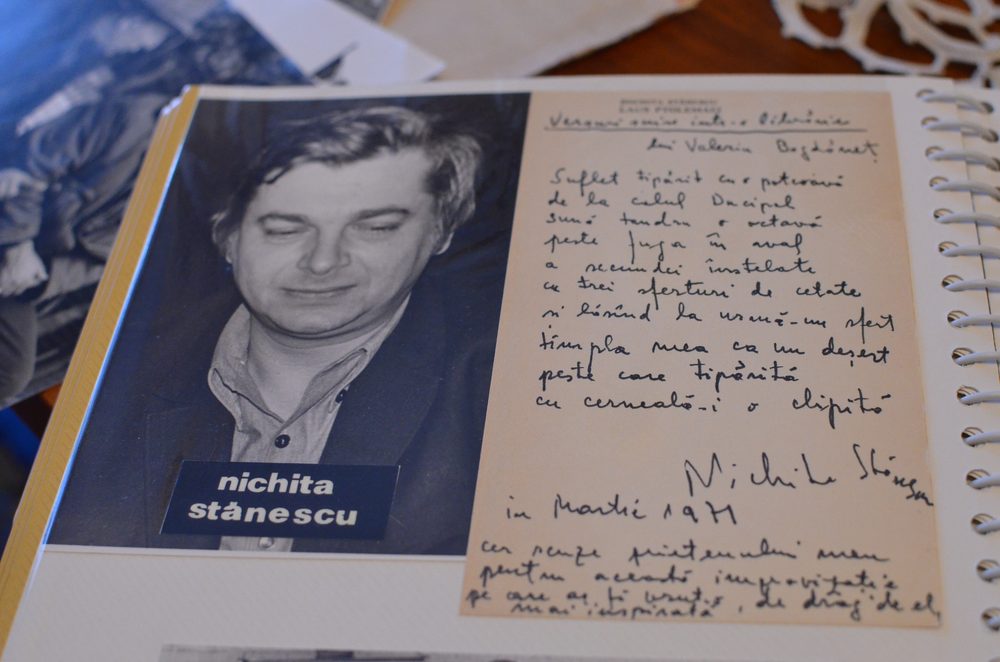 nichita
stănescu
NICHITA STĂNESCU
LAUS PTOLEMAEI
Versuri scrise intr-o librărie
lui Valeriu Bogdăneț
Suflet tipărit cu o potcoavă
de la calul Ducipal
sună tandru o octavă
peste fuga în aval
a secundei înstelate
cu trei sferturi de cetate
si lăsînd la urmă-un sfert
timpla mea ca un deșert
peste care tipărită
cu cerneală-i o clipită
Nichita Stănescu
in Martie 1971
cer scuze prietenului meu
pentru această improvizație
pe care aș fi vrut-o, de drag de el,
mai inspirată